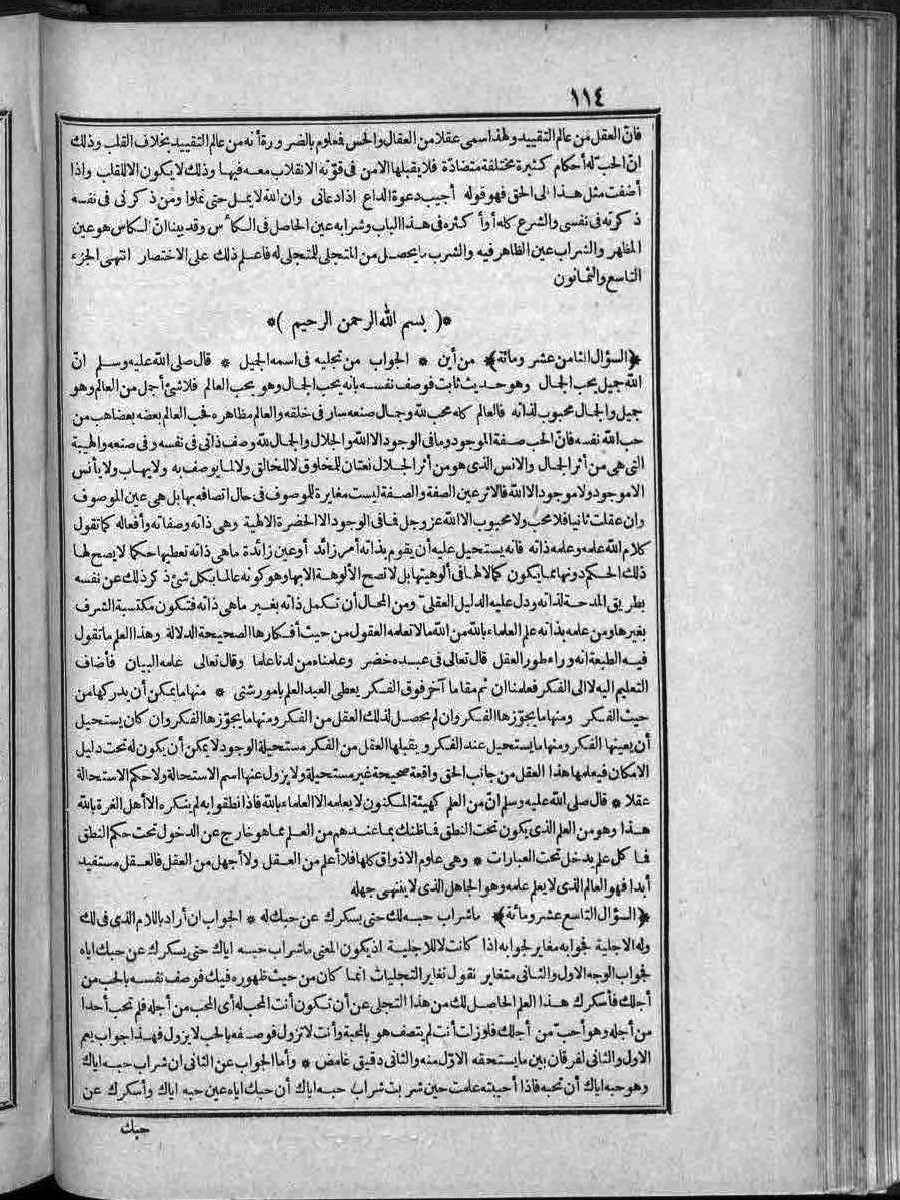 ١١٤
فانّ العقل من عالم التقييد ولهذا سمى عقلا من العقال والحس فمعلوم بالضرورة أنه من عالم التقييد بخلاف القلب وذلك
انّ الحب له أحكام كثيرة مختلفة متضادّة فلا يقبلها الا من فى قوّته الانقلاب معه فيها وذلك لا يكون الا للقلب واذا
أضفت مثل هذا الى الحق فهو قوله أجيب دعوة الداع اذا دعانى وان الله لا يمل حتى تملوا ومن ذكرنى فى نفسه
ذكرته فى نفسى والشرع كله أو أكثره فى هذا الباب وشرابه عين الحاصل فى الكأس وقد بينا انّ الكاس هو عين
المظهر والشراب عين الظاهر فيه والشرب ما يحصل من المتجلى للمتجلى له فاعلم ذلك على الاختصار انتهى الجزء
التاسع والثمانون
*( بسم الله الرحمن الرحيم )*
﴿السؤال الثامن عشر ومائة﴾ من أين * الجواب من تجليه فى اسمه الجميل * قال صلى الله عليه وسلم انّ
الله جميل يحب الجمال وهو حديث ثابت فوصف نفسه بأنه يحب الجمال وهو يحب العالم فلا شئ أجمل من العالم وهو
جميل والجمال محبوب لذاته فالعالم كله محب لله وجمال صنعه سار فى خلقه والعالم مظاهره فحب العالم بعضه بعضا هو من
حب الله نفسه فانّ الحب صفة الموجود وما فى الوجود الا الله والجلال والجمال لله وصف ذاتى فى نفسه وفى صنعه والهيبة
التى هى من أثر الجمال والانس الذى هو من أثر الجلال نعتان للمخلوق لا للخالق ولا لما يوصف به ولا يهاب ولا يأنس
الا موجود ولا موجود الا الله فالاثر عين الصفة والصفة ليست مغايرة للموصوف فى حال اتصافه بها بل هى عين الموصوف
وان عقلت ثانيا فلا محب ولا محبوب الا الله عز وجل فما فى الوجود الا الحضرة الالهية وهى ذاته وصفاته وأفعاله كما تقول
كلام الله علمه وعلمه ذاته فانه يستحيل عليه أن يقوم بذاته أمر زائد أو عين زائدة ما هى ذاته تعطيها حكما لا يصح لها
ذلك الحكم دونها مما يكون كمالا لها فى ألوهيتها بل لا تصح الألوهة الا بها وهو كونه عالما بكل شئ ذكر ذلك عن نفسه
بطريق المدحة لذاته ودل عليه الدليل العقلى ومن المحال أن تكمل ذاته بغير ما هى ذاته فتكون مكتسبة الشرف
بغيرها ومن علمه بذاته علم العلماء بالله من الله ما لا تعلمه العقول من حيث أفكارها الصحيحة الدلالة وهذا العلم ما تقول
فيه الطبعة انه وراء طور العقل قال تعالى فى عبده خضر وعلمناه من لدنا علما وقال تعالى علمه البيان فأضاف
التعليم اليه لا الى الفكر فعلمنا ان ثم مقاما آخر فوق الفكر يعطى العبد العلم بامور شتى * منها ما يمكن أن يدركها من
حيث الفكر ومنها ما يجوّزها الفكر وان لم يحصل لذلك العقل من الفكر ومنها ما يجوّزها الفكر وان كان يستحيل
أن يعينها الفكر ومنها ما يستحيل عند الفكر ويقبلها العقل من الفكر مستحيلة الوجود لا يمكن أن يكون له تحت دليل
الامكان فيعلمها هذا العقل من جانب الحق واقعة صحيحة غير مستحيلة ولا يزول عنها اسم الاستحالة ولا حكم الاستحالة
عقلا * قال صلى الله عليه وسلم انّ من العلم كهيئة المكنون لا يعلمه الا العلماء بالله فاذا نطقوا به لم ينكره الا أهل الغرة بالله
هذا وهو من العلم الذى يكون تحت النطق فما ظنك بما عندهم من العلم مما هو خارج عن الدخول تحت حكم النطق
فما كل علم يدخل تحت العبارات * وهى علوم الاذواق كلها فلا أعلم من العقل ولا أجهل من العقل فالعقل مستفيد
أبدا فهو العالم الذى لا يعلم علمه وهو الجاهل الذى لا ينتهى جهله
﴿السؤال التاسع عشر ومائة﴾ ما شراب حبه لك حتى يسكرك عن حبك له * الجواب ان أراد باللام الذى فى لك
وله الاجلية فجوابه مغاير لجوابه اذا كانت لا للاجلية اذ يكون المعنى ما شراب حبه اياك حتى يسكرك عن حبك اياه
فجواب الوجه الاول والثانى متغاير نقول تغاير التجليات انما كان من حيث ظهوره فيك فوصف نفسه بالحب من
أجلك فأسكرك هذا العلم الحاصل لك من هذا التجلى عن أن تكون أنت المحب له أى المحب من أجله فلم تحب أحدا
من أجله وهو أحبّ من أجلك فلو زلت أنت لم يتصف هو بالمحبة وأنت لا تزول فوصفه بالحب لا يزول فهذا جواب يعم
الاول والثانى لفرقان بين ما يستحقه الاوّل منه والثانى دقيق غامض * وأما الجواب عن الثانى ان شراب حبه اياك
وهو حبه اياك أن تحبه فاذا أحببته علمت حين شربت شراب حبه اياك أن حبك اياه عين حبه اياك وأسكرك عن
حبك